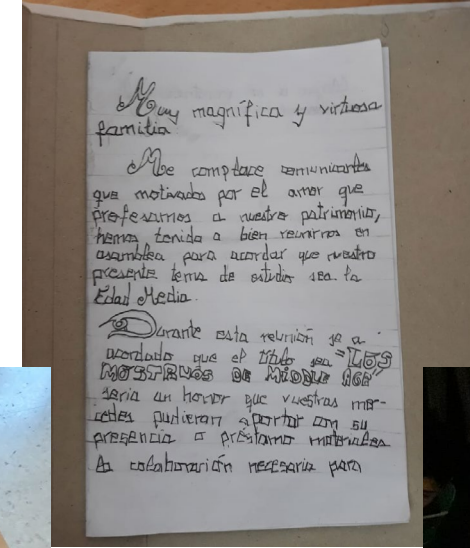 Muy magnífica y virtuosa
familia
Me complace comunicarles
que motivados por el amor que
profesamos a nuestro patrimonio,
hemos tenido a bien reunirnos en
asamblea para acordar que nuestro
presente tema de estudio sea la
Edad Media.
Durante esta reunión se a
acordado que el título sea "LOS
MOSTRNOS DE MIDDLE AGE
sería un honor que vuestras mer-
cedes pudieran aportar con su
presencia o préstamo materiales
la colaboración necesaria para